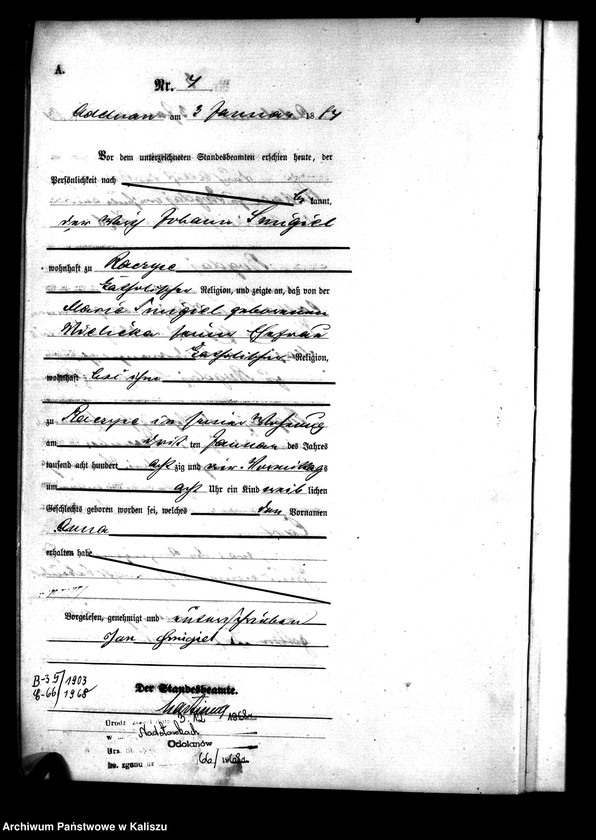 A.
Nr. 4
Adelnau am 3 Januar 1884
Vor dem unterzeichneten Standesbeamten erschien heute, der
Persönlichkeit nach
be kannt,
der Johann Smigiel
wohnhaft zu Raczyce
katholischer Religion, und zeigte an, daß von der
Marie Smigiel geborenen
seiner Ehefrau
katholischer Religion,
wohnhaft bei ihm
zu Raczyce in seiner Wohnung
am drit ten Januar des Jahres
tausend acht hundert acht zig und vier Vormittags
um acht Uhr ein Kind weib lichen
Geschlechts geboren worden sei, welches den Vornamen
Anna
erhalten habe
Vorgelesen, genehmigt und unterschrieben
Jan Smigiel
B-35/1903
C-66/1968
Der Standesbeamte.
1968
w
Odolanów
66/1968
Archiwum Państwowe w Kaliszu